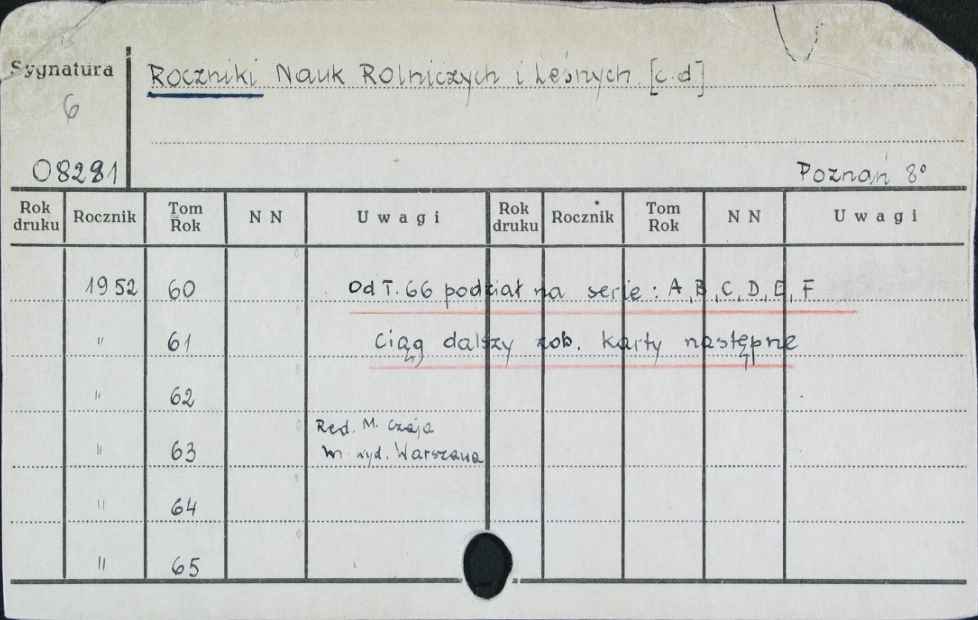 Sygnatura
Roczniki Nauk Rolniczych i Leśnych [c.d]
6
08281
Poznań 8°
Rok druku Rocznik Tom Rok NN Uwagi Rok druku Rocznik Tom Rok NN Uwagi
1952 60 Od T. 66 podział na serie: A, B, C, D, E, F
" 61 Ciąg dalszy zob. karty następne
" 62
Red. M. Czaja
" 63 m. wyd. Warszawa
" 64
" 65